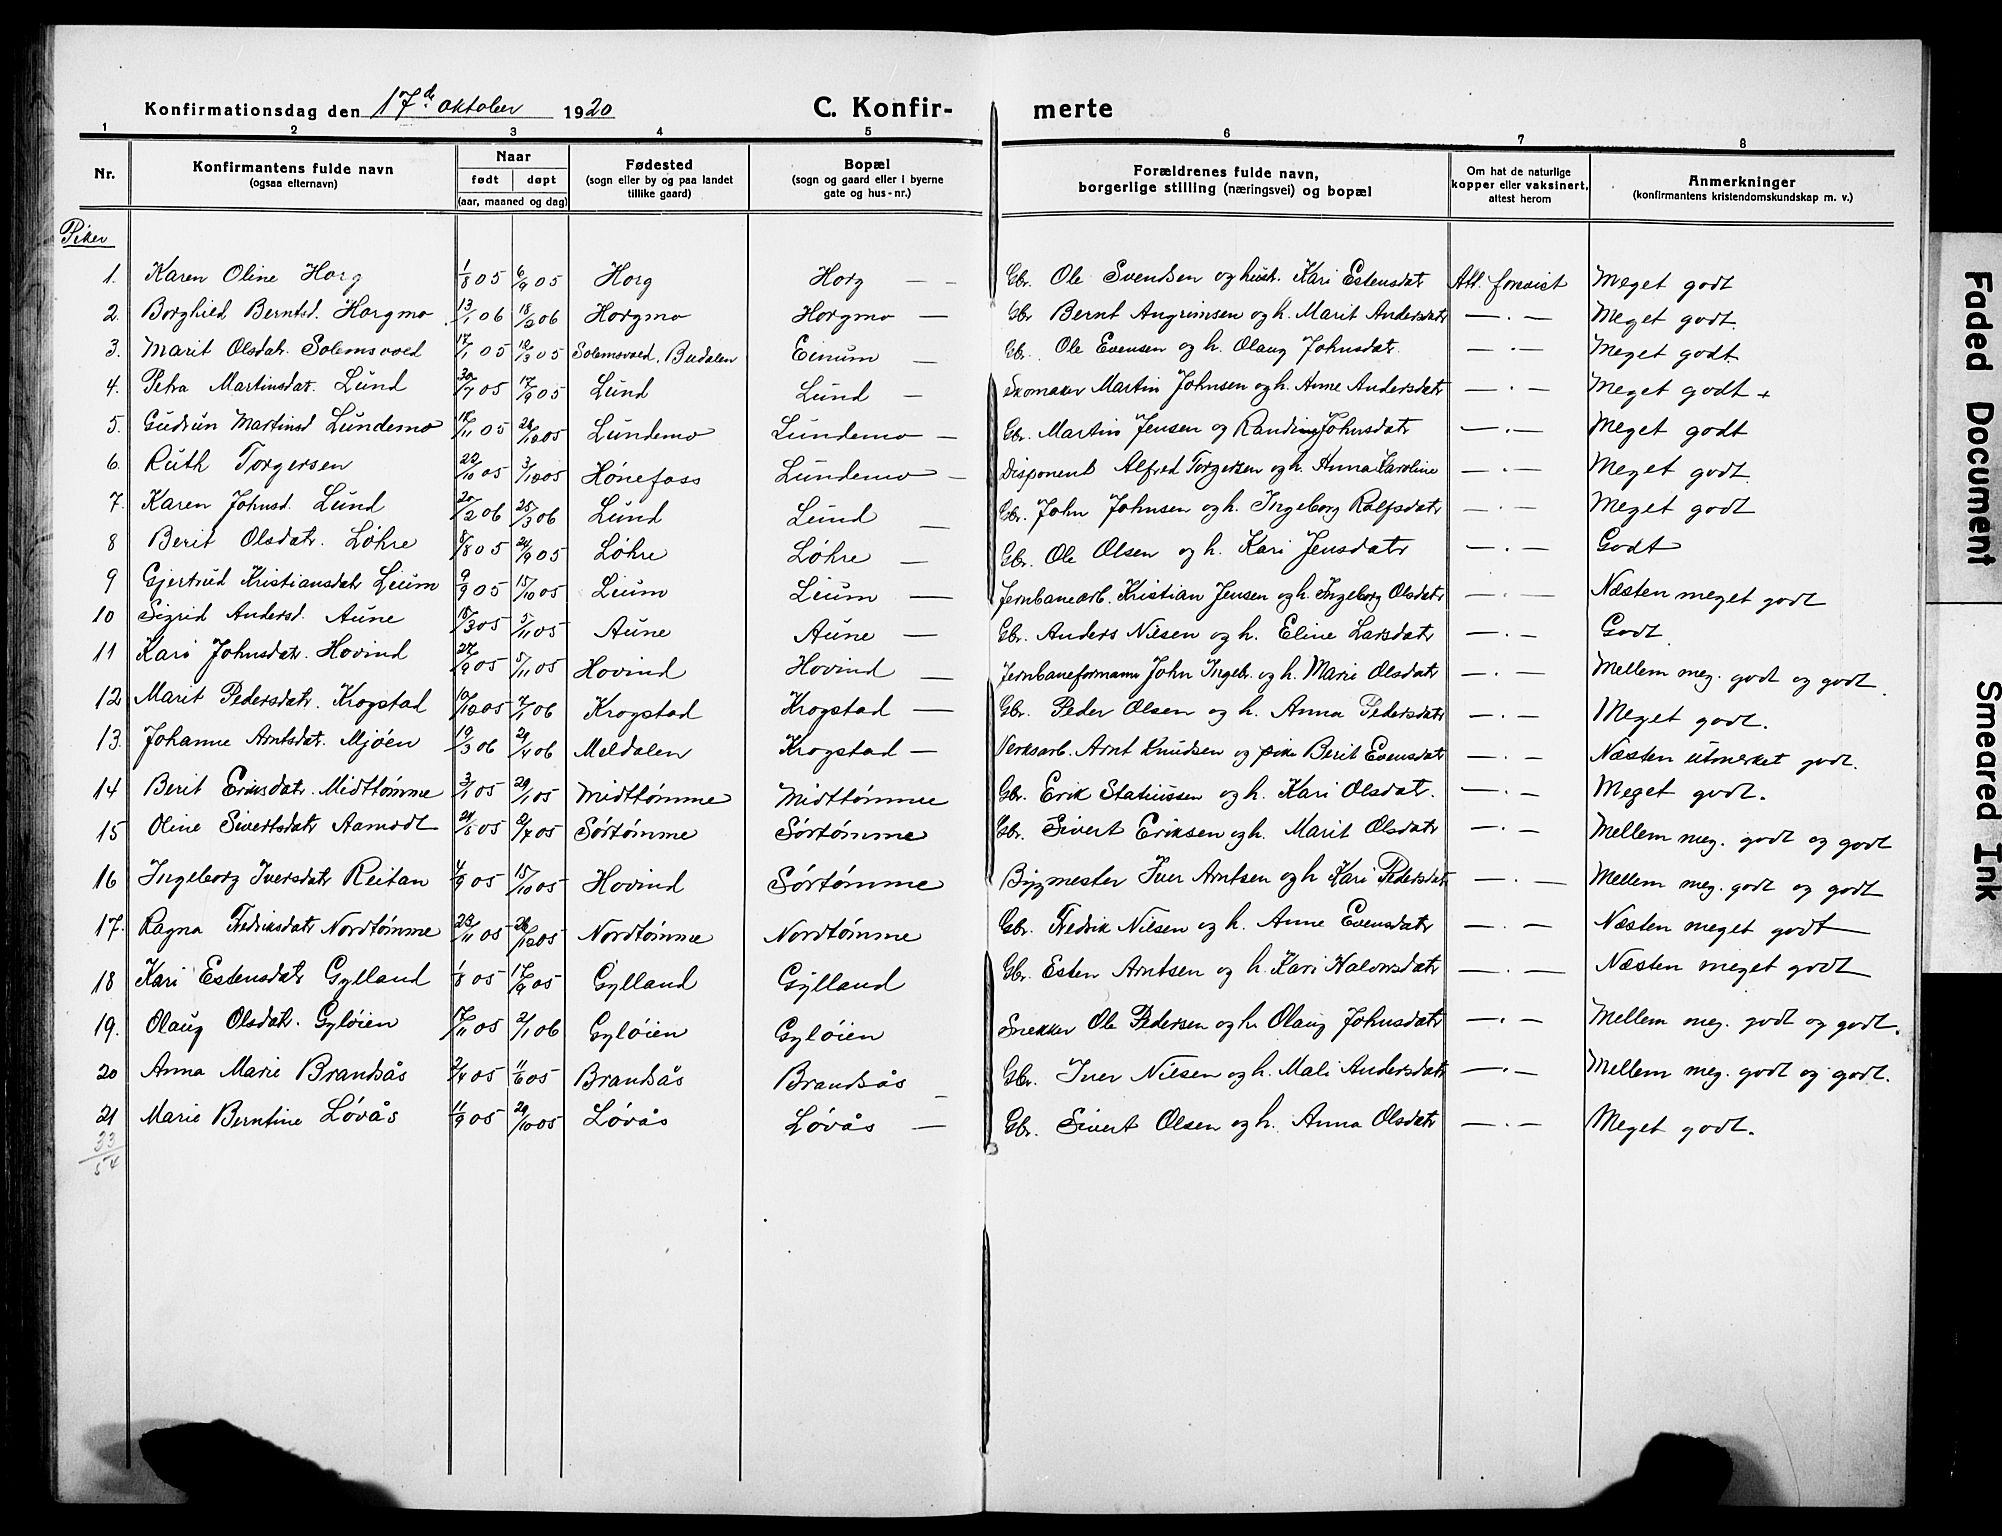 Konfirmationsdag den 17de oktober 1920 C. Konfir- merte
1 2 3 4 5 6 7 8
Nr. Konfirmantens fulde navn (ogsaa elternavn) Naar født døpt (aar, maaned og dag) Fødested (sogn eller by og paa landet tillike gaard) Bopæl (sogn og gaard eller i byerne gate og hus-nr.) Forældrenes fulde navn, borgerlige stilling (næringsvei) og bopæl Om hat de naturlige kopper eller vaksinert, attest herom Anmerkninger (konfirmantens kristendomskundskap m. v.)
Piker
1. Karen Oline Horg 1/8 05 6/9 05 Horg Horg — - Gbr. Ole Svendsen og hust. Kari Estensdatr Att. forevist Meget godt
2. Borghild Berntsd. Horgmo 13/1 06 18/2 06 Horgmo Horgmo — Gbr Bernt Angrimsen og h. Marit Andersdatr — . — Meget godt
3. Marit Olsdatr. Solemsvoed 17/1 05 12/3 05 Solemsvoed, Budalen Einum — Gbr. Ole Evensen og h. Olaug Johnsdatr. — . — Meget godt
4. Petra Martinsdat. Lund 30/7 05 17/9 05 Lund Lund — Skomaker Martin Johnsen og h. Anne Andersdatr — . — Meget godt +
5. Gudrun Martinsd Lundemo 18/11 05 26/12 05 Lundemo Lundemo — Gbr. Martin Jensen og Randine Johnsdatr — . — Meget godt
6. Ruth Torgersen 05 05 Hønefoss Lundemo — Disponent Alfred Torgersen og h. Anna Karoline — . — Meget godt
7. Karen Johnsd. Lund 20/2 06 25/3 06 Lund Lund — Gbr. John Johnsen og h. Ingeborg Rolfsdatr — . — Meget godt
8 Berit Olsdatr. Løhre 8/8 05 24/9 05 Løhre Løhre — Gbr. Ole Olsen og h. Kari Jensdatr — . — Godt
9 Gjertrud Kristiansdatr Leum 9/9 05 15/10 05 Leum Leum — Jernbanearb. Kristian Jensen og h. Ingeborg Olsdatr — . — Næsten meget godt
10 Sigrid Andersd. Aune 18/3 05 5/11 05 Aune Aune — Gbr. Anders Nilsen og h. Eline Larsdatr — . — Godt
11 Kari Johnsdatr. Hovind 27/9 05 5/11 05 Hovind Hovind — Jernbaneformann John Ingebr. og h. Marie Olsdatr — . — Mellem meg. godt og godt.
12 Marit Pedersdatr. Krogstad 10/12 05 7/1 06 Krogstad Krogstad — Gbr. Peder Olsen og h. Anna Pedersdatr — . — Meget godt.
13. Johanne Arntsdatr. Mjøen 19/3 06 29/4 06 Meldalen Krogstad — Verksarb. Arnt Knudsen og pike Berit Evensdatr — . — Næsten utmerket godt.
14 Berit Eriksdatr. Midttømme 3/1 05 29/1 05 Midttømme Midttømme Gbr. Erik Statiussen og h. Kari Olsdatr. — . — Meget godt.
15 Oline Sivertsdatr Aamodt 21/5 05 2/7 05 Sørtømme Sørtømme Gbr. Sivert Eriksen og h. Marit Olsdatr — . — Mellem meg. godt og godt
16 Ingeborg Iversdatr Reitan 4/9 05 15/10 05 Hovind Sørtømme Bygmester Iver Arntsen og h Kari Pedersdatr — . — Mellem meg. godt og godt
17. Ragna Fredriksdatr Nordtømme 23/11 05 26/12 05 Nordtømme Nordtømme Gbr. Fredrik Nilsen og h. Anne Evensdatr — . — Næsten meget godt
18 Kari Estensdatr Gylland 1/8 05 17/9 05 Gylland Gylland Gbr. Esten Arntsen og h. Kari Halvorsdatr — . — Næsten meget godt
19. Olaug Olsdatr. Gyløien 17/11 05 2/1 06 Gyløien Gyløien Snekker Ole Pedersen og h. Olaug Johnsdatr — . — Mellem meg. godt og godt.
20 Anna Marie Brandsås 2/4 05 11/6 05 Brandsås Brandsås - Gbr. Iver Nilsen og h. Mali Andersdatr — . — Mellem meg. godt og godt.
21 Marie Berntine Løvås 11/9 05 29/10 05 Løvås Løvås — Gbr. Sivert Olsen og h. Anna Olsdatr — . — Meget godt.
33
54
Faded Document
Smeared Ink